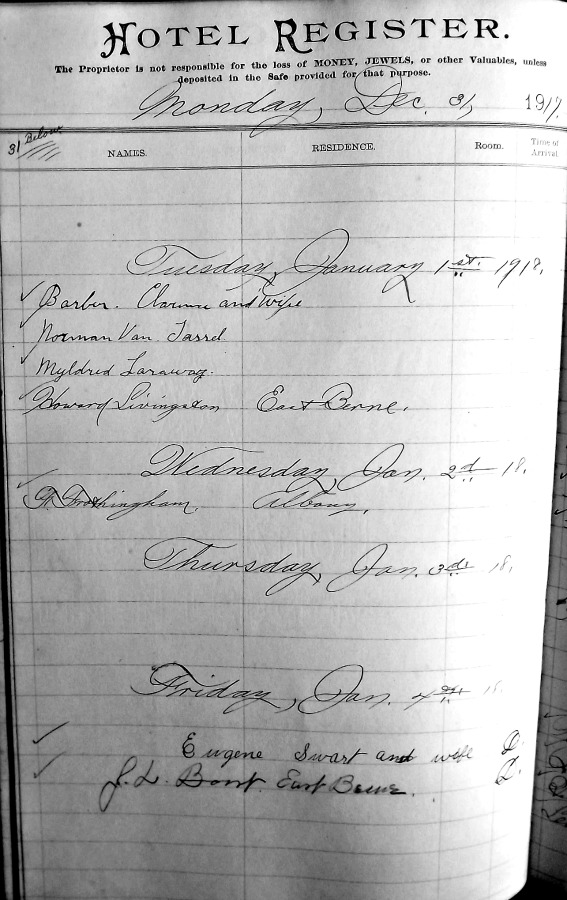 HOTEL REGISTER.
The Proprietor is not responsible for the loss of MONEY, JEWELS, or other Valuables, unless
deposited in the Safe provided for that purpose.
Monday, Dec. 31, 1917.
31 Below
NAMES. RESIDENCE. Room. Time of Arrival
Tuesday, January 1st. 1918.
Barber. Clarence and Wife
Norman Van Tassel
Myldred Laraway.
Howard Livingston East Berne.
Wednesday, Jan. 2d 18.
Frothingham, Albany.
Thursday, Jan. 3d. 18.
Friday, Jan. 4th 18.
Eugene Swart and wife D.
J. L. Borst. East Berne. D.